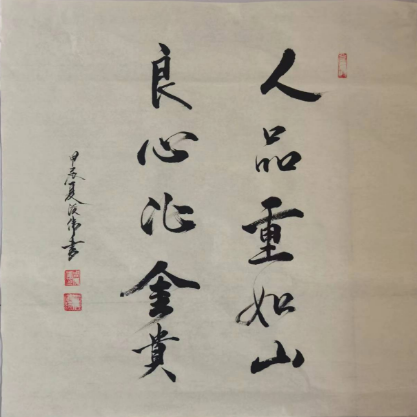 人品重如山
良心比金贵
甲辰夏汉伟书